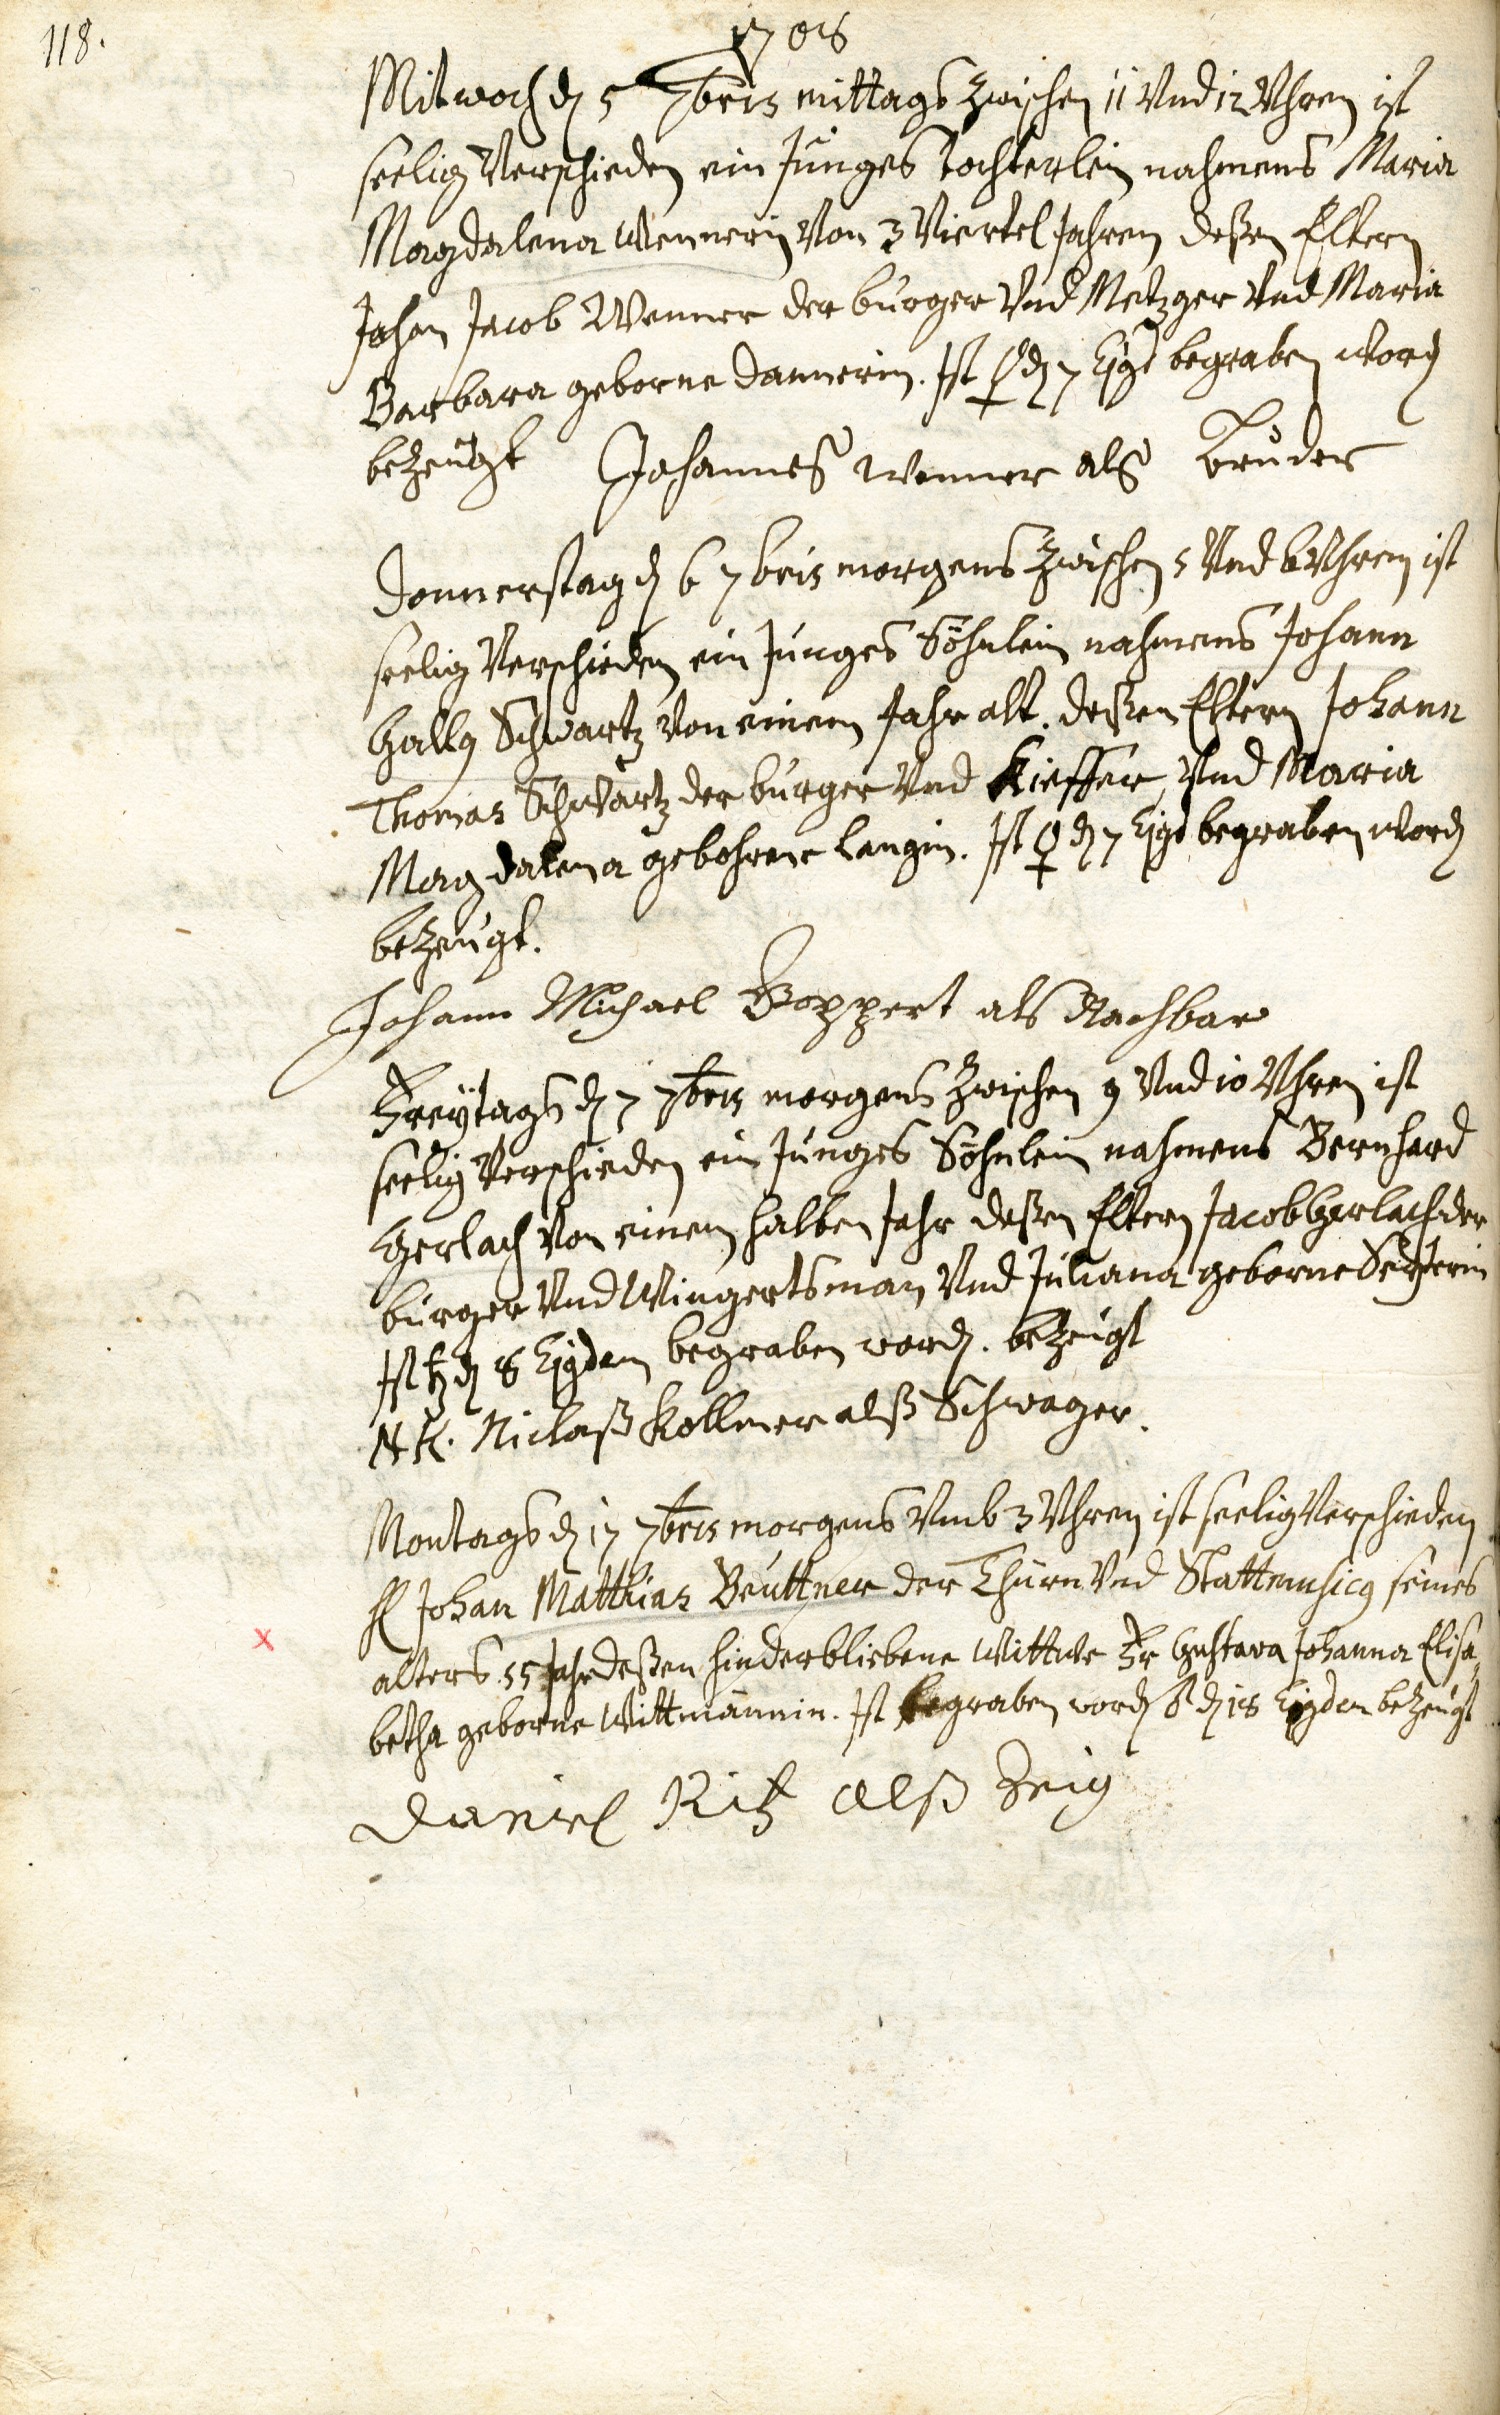 118.
1708
Mitwoch d 5 7bris mittags zwischen 11 Vnd 12 Vhren ist
seelig Verschieden ein junges tochterlein nahmens Maria
Magdalena Wennerin Von 3 Viertel Jahren deßen Eltern
Johan Jacob Wenner der burger Vnd Metzger Vnd Maria
Barbara geborne Dannerin. Ist ♀ d 7 Ejgd begraben word
bezeugt Johannes Wenner als Bruder
Donnerstag d 6 7bris morgens zwischen 5 Vnd 6 Vhren ist
seelig Verschieden ein junges Söhnlein nahmens Johann
Gallg Schwartz Von einem Jahr alt. deßen Eltern Johann
Thomas Schwartz der burger Vnd Kieffer, Vnd Maria
Magdalena gebohrene Langin. Ist ♀ d 7 Ejgd begraben word
bezeugt.
Johann Michael Boppert als Nachbar
Freÿtags d 7 7bris morgens zwischen 9 Vnd 10 Vhren ist
seelig Verschieden ein junges Söhnlein nahmens Bernhard
Gerlach Von einem halben Jahr deßen Eltern Jacob Gerlach der
burger Vnd Wingertsman Vnd Juliana geborne
Ist ♄ d 8 Ejgdem begraben word. bezeugt
N K. Niclaß Kollmer alß Schwager.
Montags d 17 7bris morgens Vmb 3 Vhren ist seelig Verschieden
H Johan Matthias Beuttner der Thurn Vnd Stattmusicg seines
alters 55 Jahr deßen hinderbliebene Wittwe Fr Gustava Johanna Elisa„
betha geborne Wittmännin. Ist begraben word ♂ d 18 Ejgdem bezeugt
Daniel Ritz alß Zeig